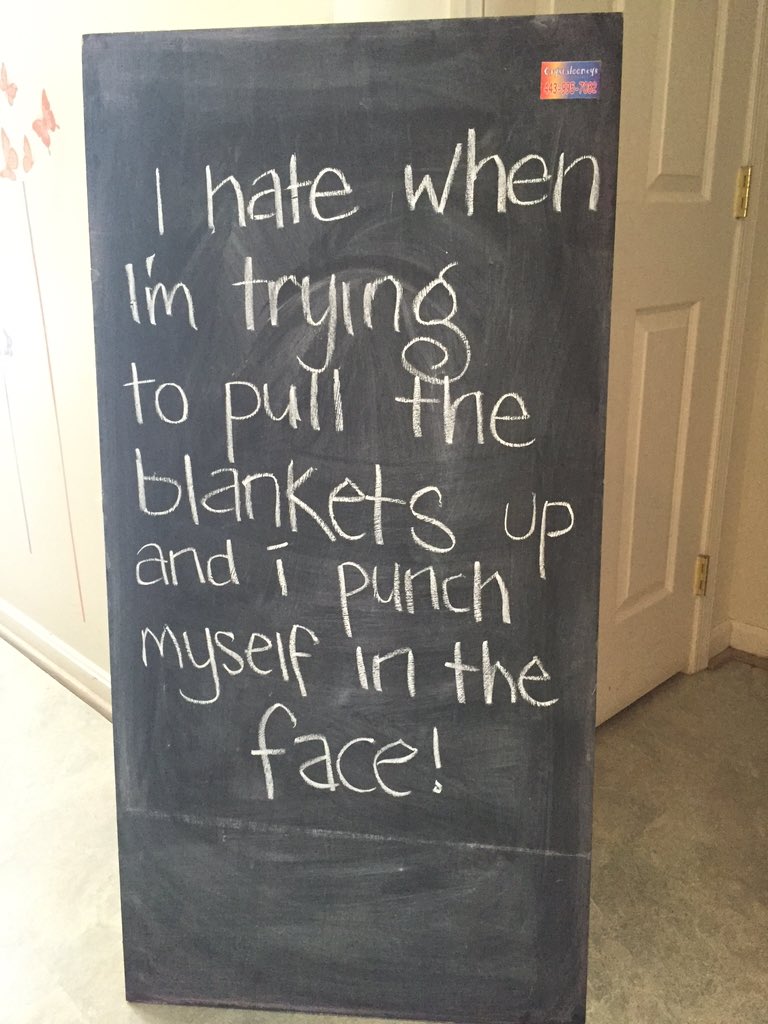 I hate when
I'm trying
to pull the
blankets up
and i punch
myself in the
face!